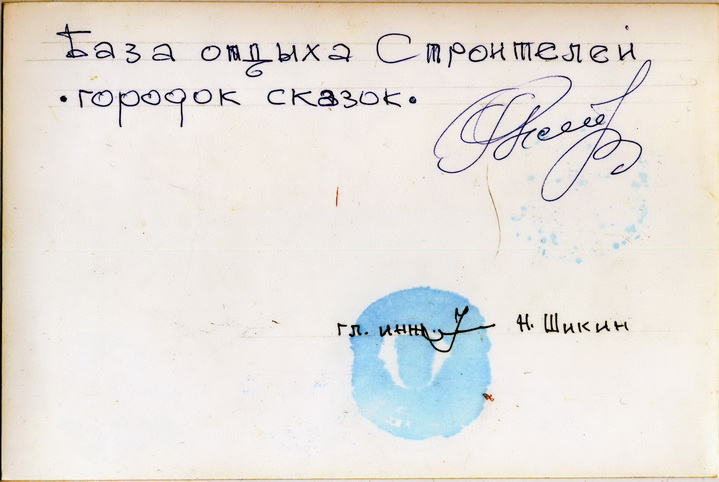 База отдыха Строителей
•городок сказок•
гл. инж. Н. Шикин